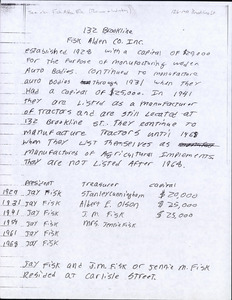 132 Brookline
Fisk Alden Co. Inc.
established 1928 with a capital of $20,000
For the purpose of manufacturing wooden
Auto Bodies. Continued to manufacture
auto bodies through 1931 when They
Had a capital of $25,000. In 1941
they are Listed as a manufacturer
of tractors and are still Located at
132 Brookline St. They continue to
manufacture Tractors until 1968
when They List themselves as
manufactures of Agricultural Implements
They are not Listed After 1968.
President Treasurer capital
1929 Jay Fisk Stanley Cunningham $20,000
1931 Jay Fisk Albert E. Olson $25,000
1941 Jay Fisk J.M. Fisk $25,000
Jay Fisk Mrs. Fisk
1961 Jay Fisk
1968 Jay Fisk
Jay Fisk and J.M. Fisk or Jennie M. Fisk
Resided at Carlisle Street.